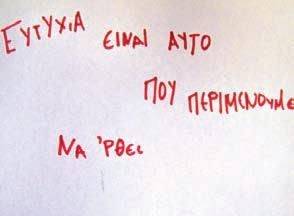 ΕΥΤΥΧΙΑ ΕΙΝΑΙ ΑΥΤΟ
ΠΟΥ ΠΕΡΙΜΕΝΟΥΜΕ
ΝΑ 'ΡΘΕΙ